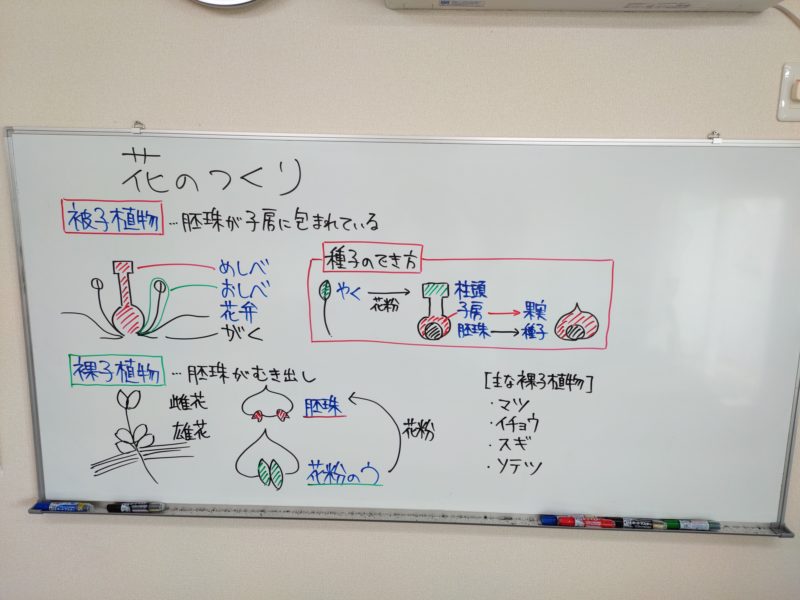 花のつくり
被子植物 …胚珠が子房に包まれている
めしべ
おしべ
花弁
がく
種子のでき方
やく
花粉
柱頭
子房 果実
胚珠 種子
裸子植物 …胚珠がむき出し
雌花
雄花
胚珠
花粉のう
花粉
[主な裸子植物]
・マツ
・イチョウ
・スギ
・ソテツ